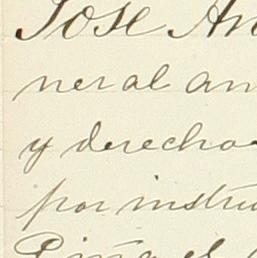 José An
neral am
y derecho
por instru